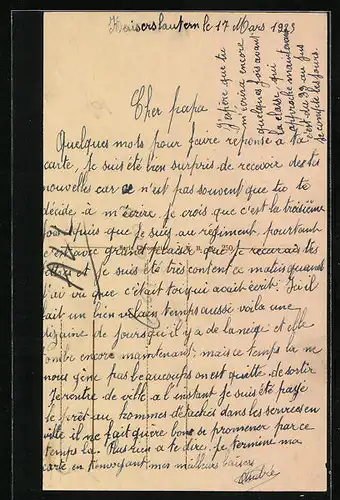 Kaiserslautern le 17 Mars 1923
Cher papa
Quelques mots pour faire réponse à ta
carte, Je suis été bien surpris de recevoir des tes
nouvelles car ce n'est pas souvent que tu te
décide à m'écrire je crois que c'est la troisième
fois depuis que je suis au régiment, pourtant
c'est avec grand plaisir que je recevrais tes
je suis été très content ce matin quand
j'ai vu que c'était toi qui avait écrit. Ici il
fait un bien vilain temps aussi voila une
dizaine de jours qu'il y a de la neige et elle
tombe encore maintenant, mais ce temps la ne
nous gène pas beaucoup on est quitte de sortir
Je rentre de ville a l'instant je suis été payé
le prêt au hommes détaché dans les services en
ville il ne fait guère bon se promener par ce
temps la. Plus rien a te dire. Je termine ma
carte en t'envoyant mes meilleurs baisers
J'espère que tu
m'écrira encore
quelques fois avant
la classe qui
approche maintenant
c'est du 39 au jus
se compte les jours.